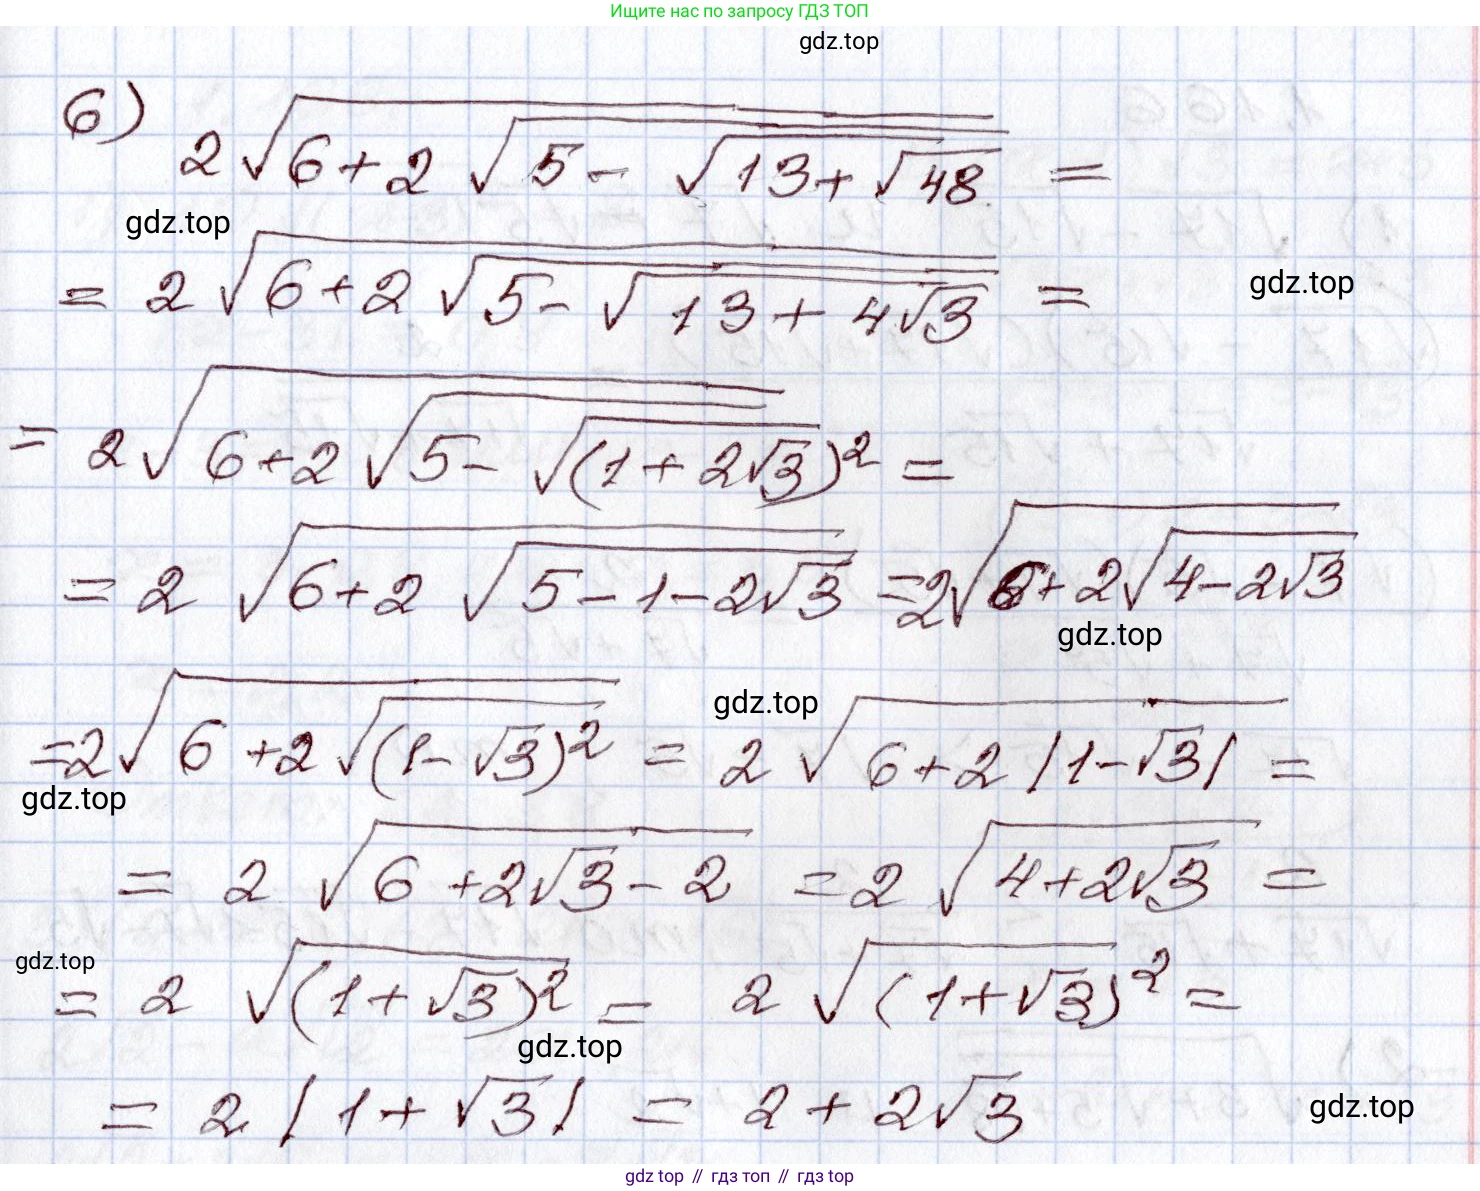 Ищите нас по запросу ГДЗ ТОП
gdz.top
6) 2√(6+2√(5-√(13+√48))) =
gdz.top
= 2√(6+2√(5-√(13+4√3))) =
gdz.top
= 2√(6+2√(5-√(1+2√3)²)) =
= 2√(6+2√(5-1-2√3)) = 2√(6+2√(4-2√3))
gdz.top
= 2√(6+2√(1-√3)²) = 2√(6+2|1-√3|) =
gdz.top
gdz.top
= 2√(6+2√3-2) = 2√(4+2√3) =
gdz.top
= 2√(1+√3)² = 2√(1+√3)² =
gdz.top
= 2|1+√3| = 2+2√3
gdz.top
gdz top // гдз топ // гдз top